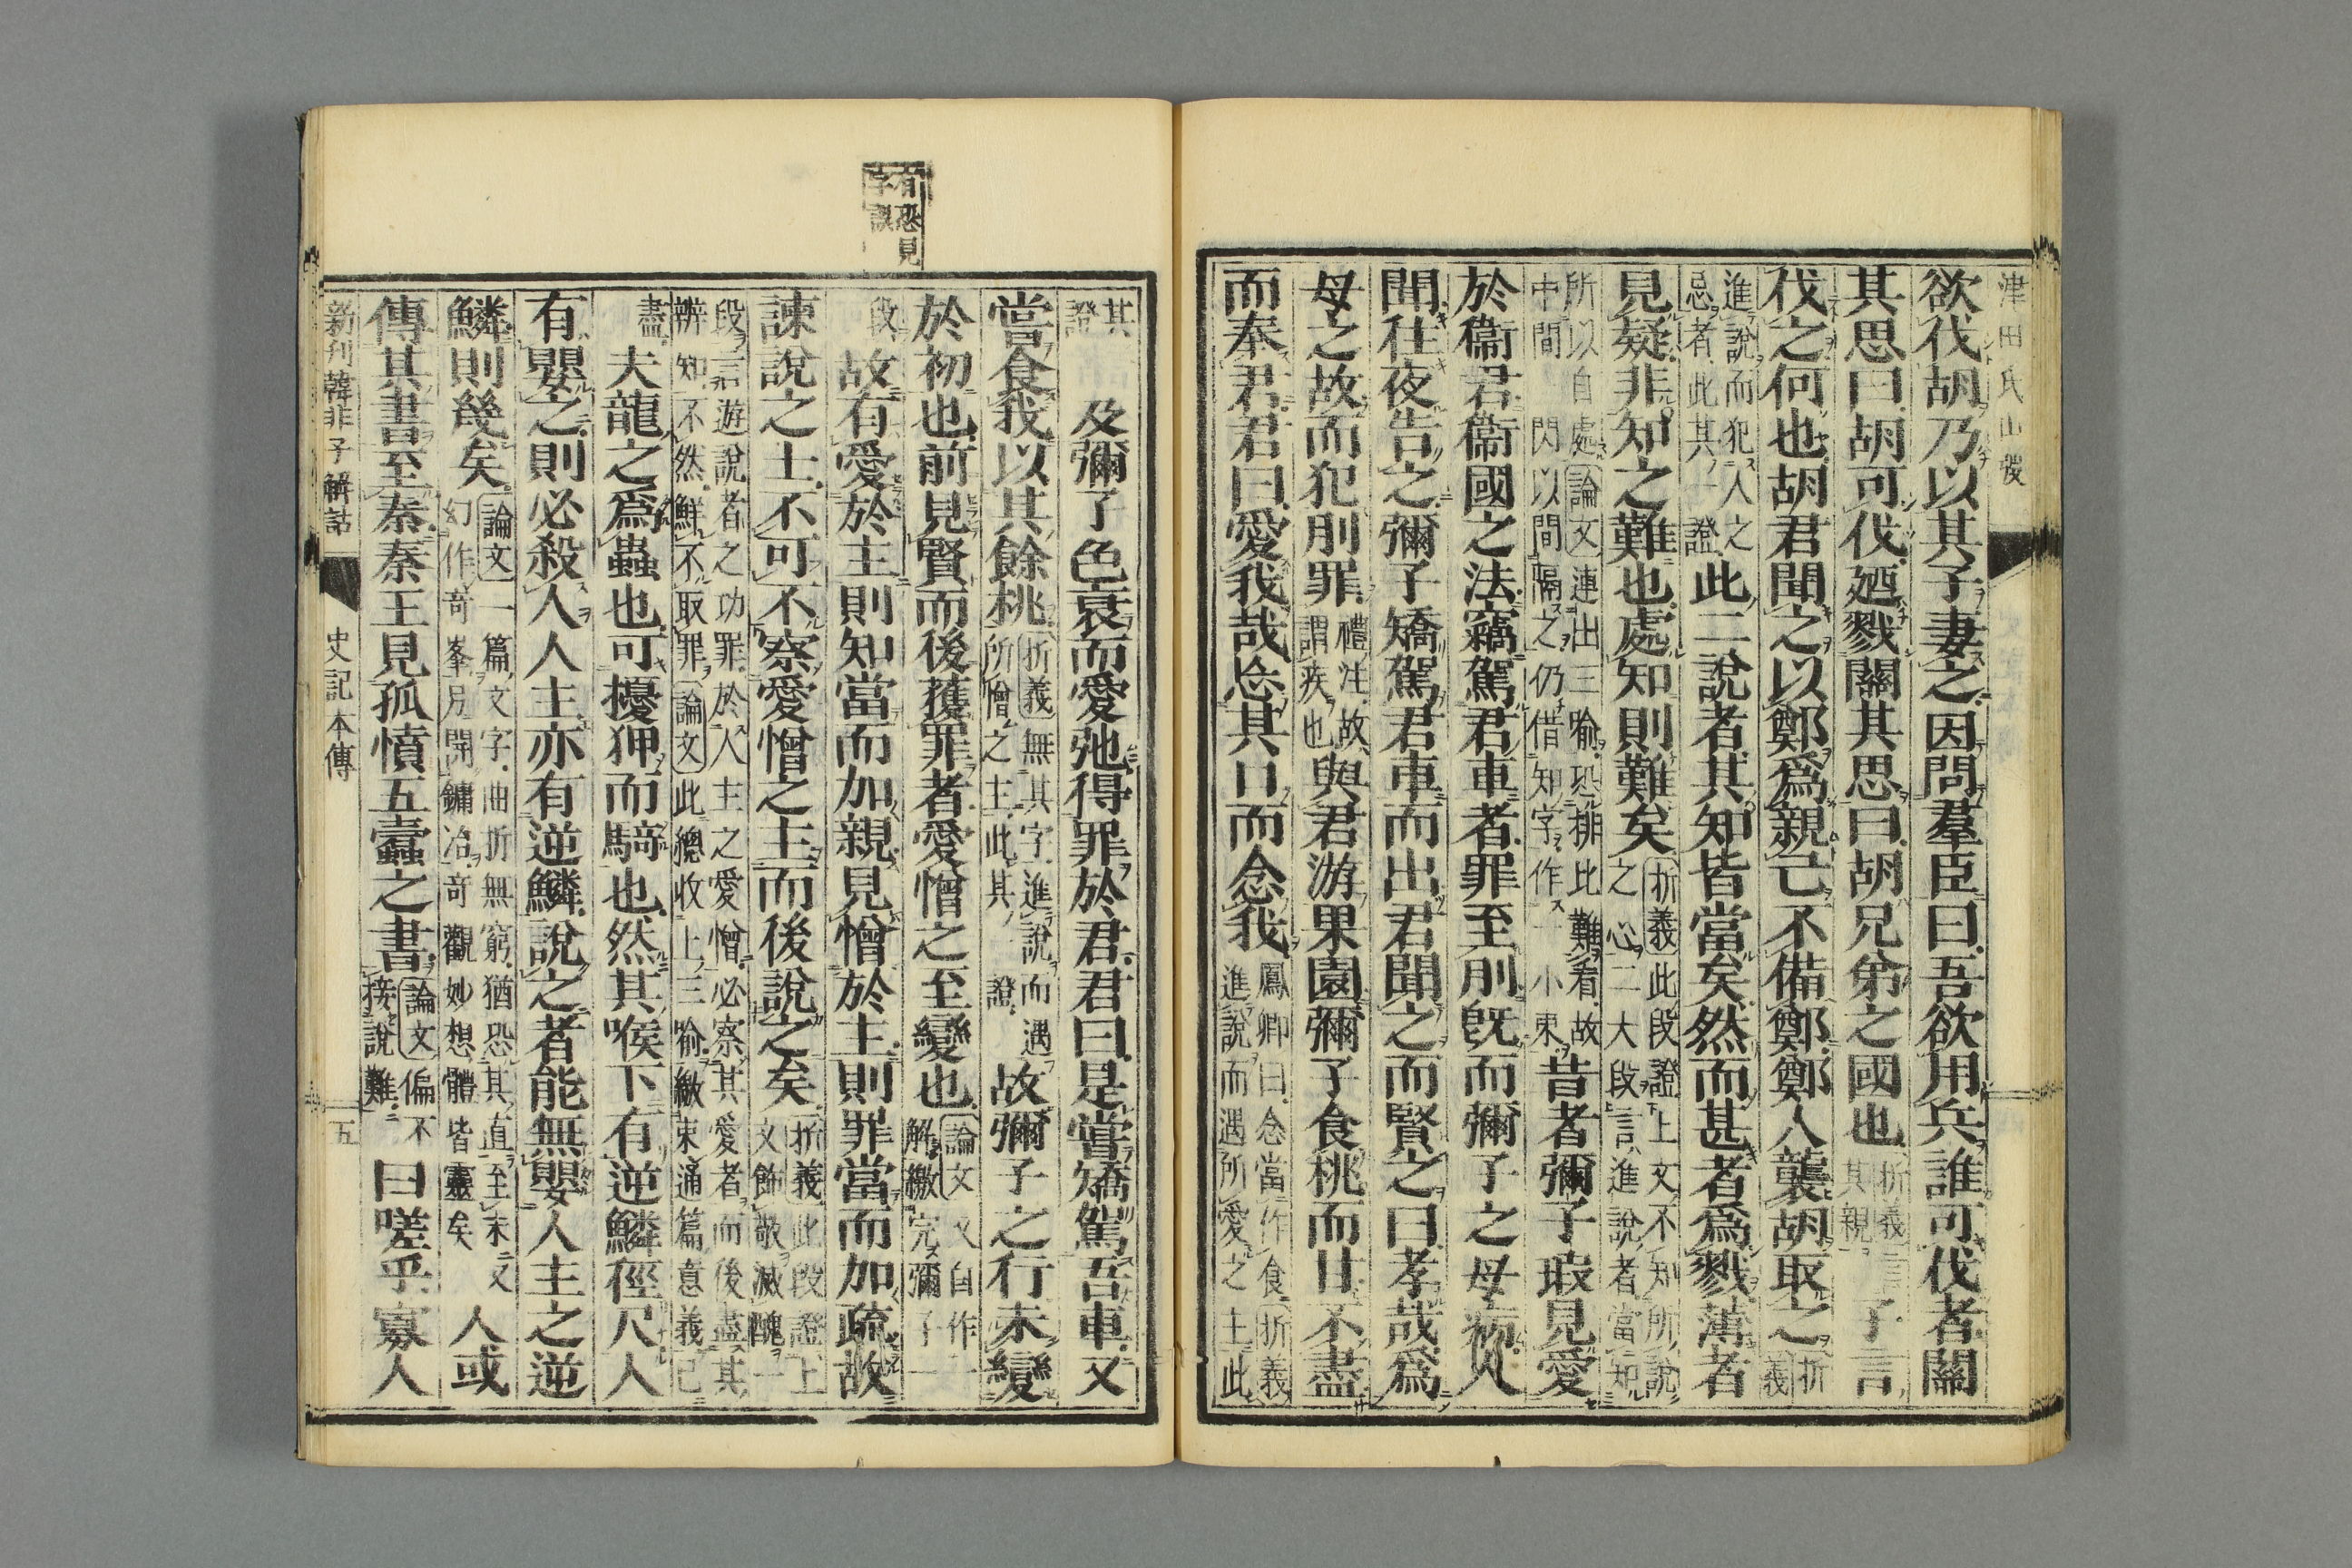 津田氏山夌
欲伐胡乃以其子妻之因問羣臣曰吾欲用兵誰可伐者關
其思曰胡可伐廼戮關其思曰胡兄弟之國也折義言其親子言
伐之何也胡君聞之以鄭爲親己不備鄭鄭人襲胡取之折義
進說而犯人之忌者此其一證此二說者其知皆當矣然而甚者爲戮薄者
見疑非知之難也處知則難矣折義此段證上文不知所說之心二大段言進說者當知
所以自處論文連出三喻恐排比難看故中間閃以間隔之仍借知字作一小束昔者彌子瑕見愛
於衞君衞國之法竊駕君車者罪至刖旣而彌子之母病人
聞往夜告之彌子矯駕君車而出君聞之而賢之曰孝哉爲
母之故而犯刖罪禮注故謂疾也與君游果園彌子食桃而甘不盡
而奉君君曰愛我哉忘其口而念我鳳卿曰念當作食折義進說而遇所愛之主此
其證及彌子色衰而愛弛得罪於君君曰是嘗矯駕吾車又
嘗食我以其餘桃折義無其字進說而遇所憎之主此其一證故彌子之行未變
於初也前見賢而後獲罪者愛憎之至變也論文又自作一解繳完彌子一
段故有愛於主則知當而加親見憎於主則罪當而加疏故
諫說之士不可不察愛憎之主而後說之矣折義此段證上文飾敬滅醜一
段言遊說者之功罪於人主之愛憎必察其愛者而後盡其辨知不然鮮不取罪論文此總收上三喻繳束通篇意義已
盡夫龍之爲蟲也可擾狎而騎也然其喉下有逆鱗徑尺人
有嬰之則必殺人人主亦有逆鱗說之者能無嬰人主之逆
鱗則幾矣論文一篇文字曲折無窮猶恐其直至末又幻作奇峯另開鏽冶奇觀妙想體皆靈矣人或
傳其書至秦秦王見孤憤五蠹之書論文偏不接說難曰嗟乎寡人
新刊韓非子解詁 史記本傳 五
有恐見字誤